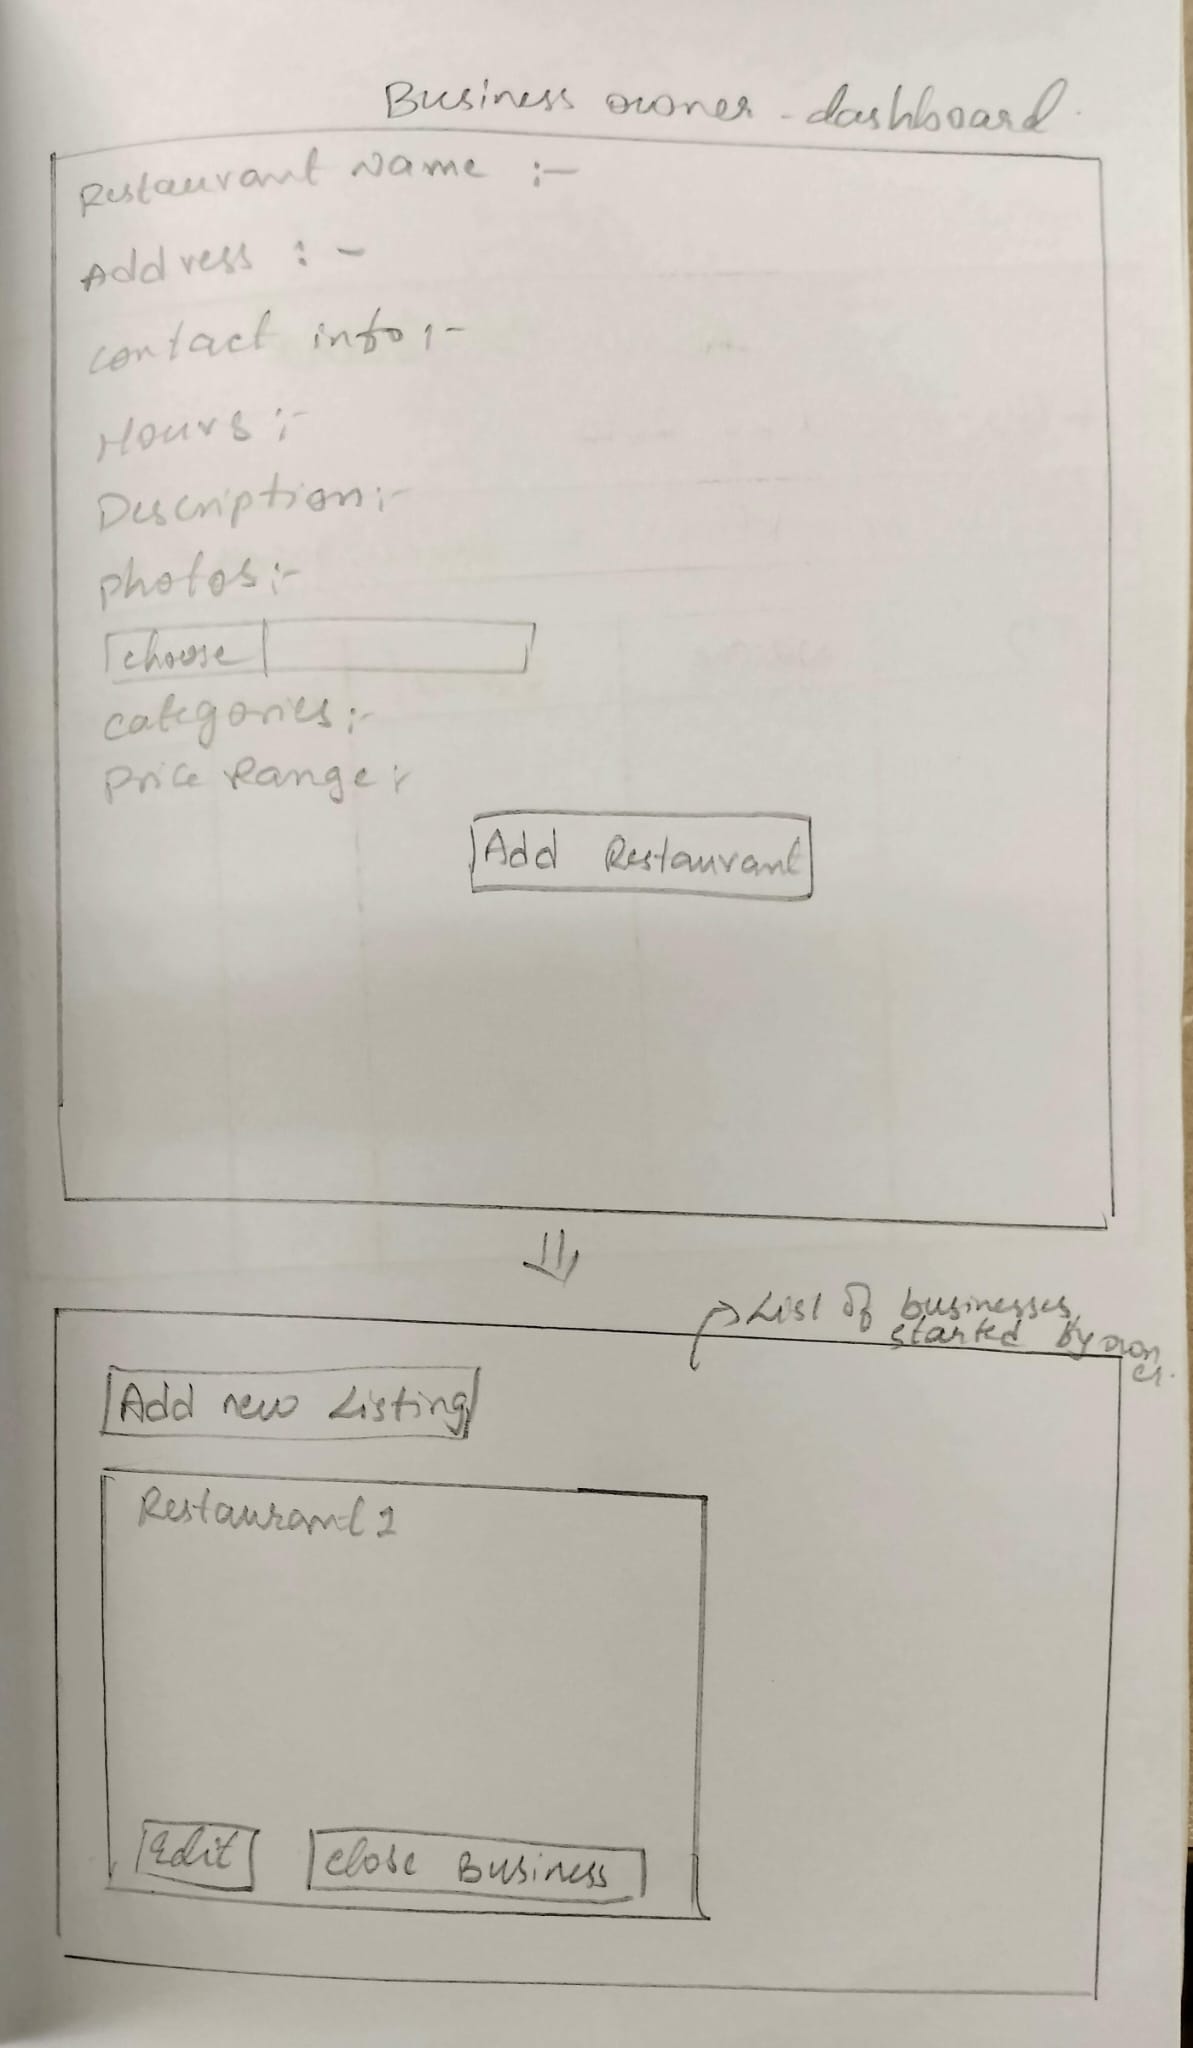 Business owner - dashboard.
Restaurant Name :-
Address :-
contact info :-
Hours :-
Description :-
photos :-
choose
categories :-
price Range :-
Add Restaurant
List of businesses
started by own
er.
Add new Listing
Restaurant 1
Edit
close Business